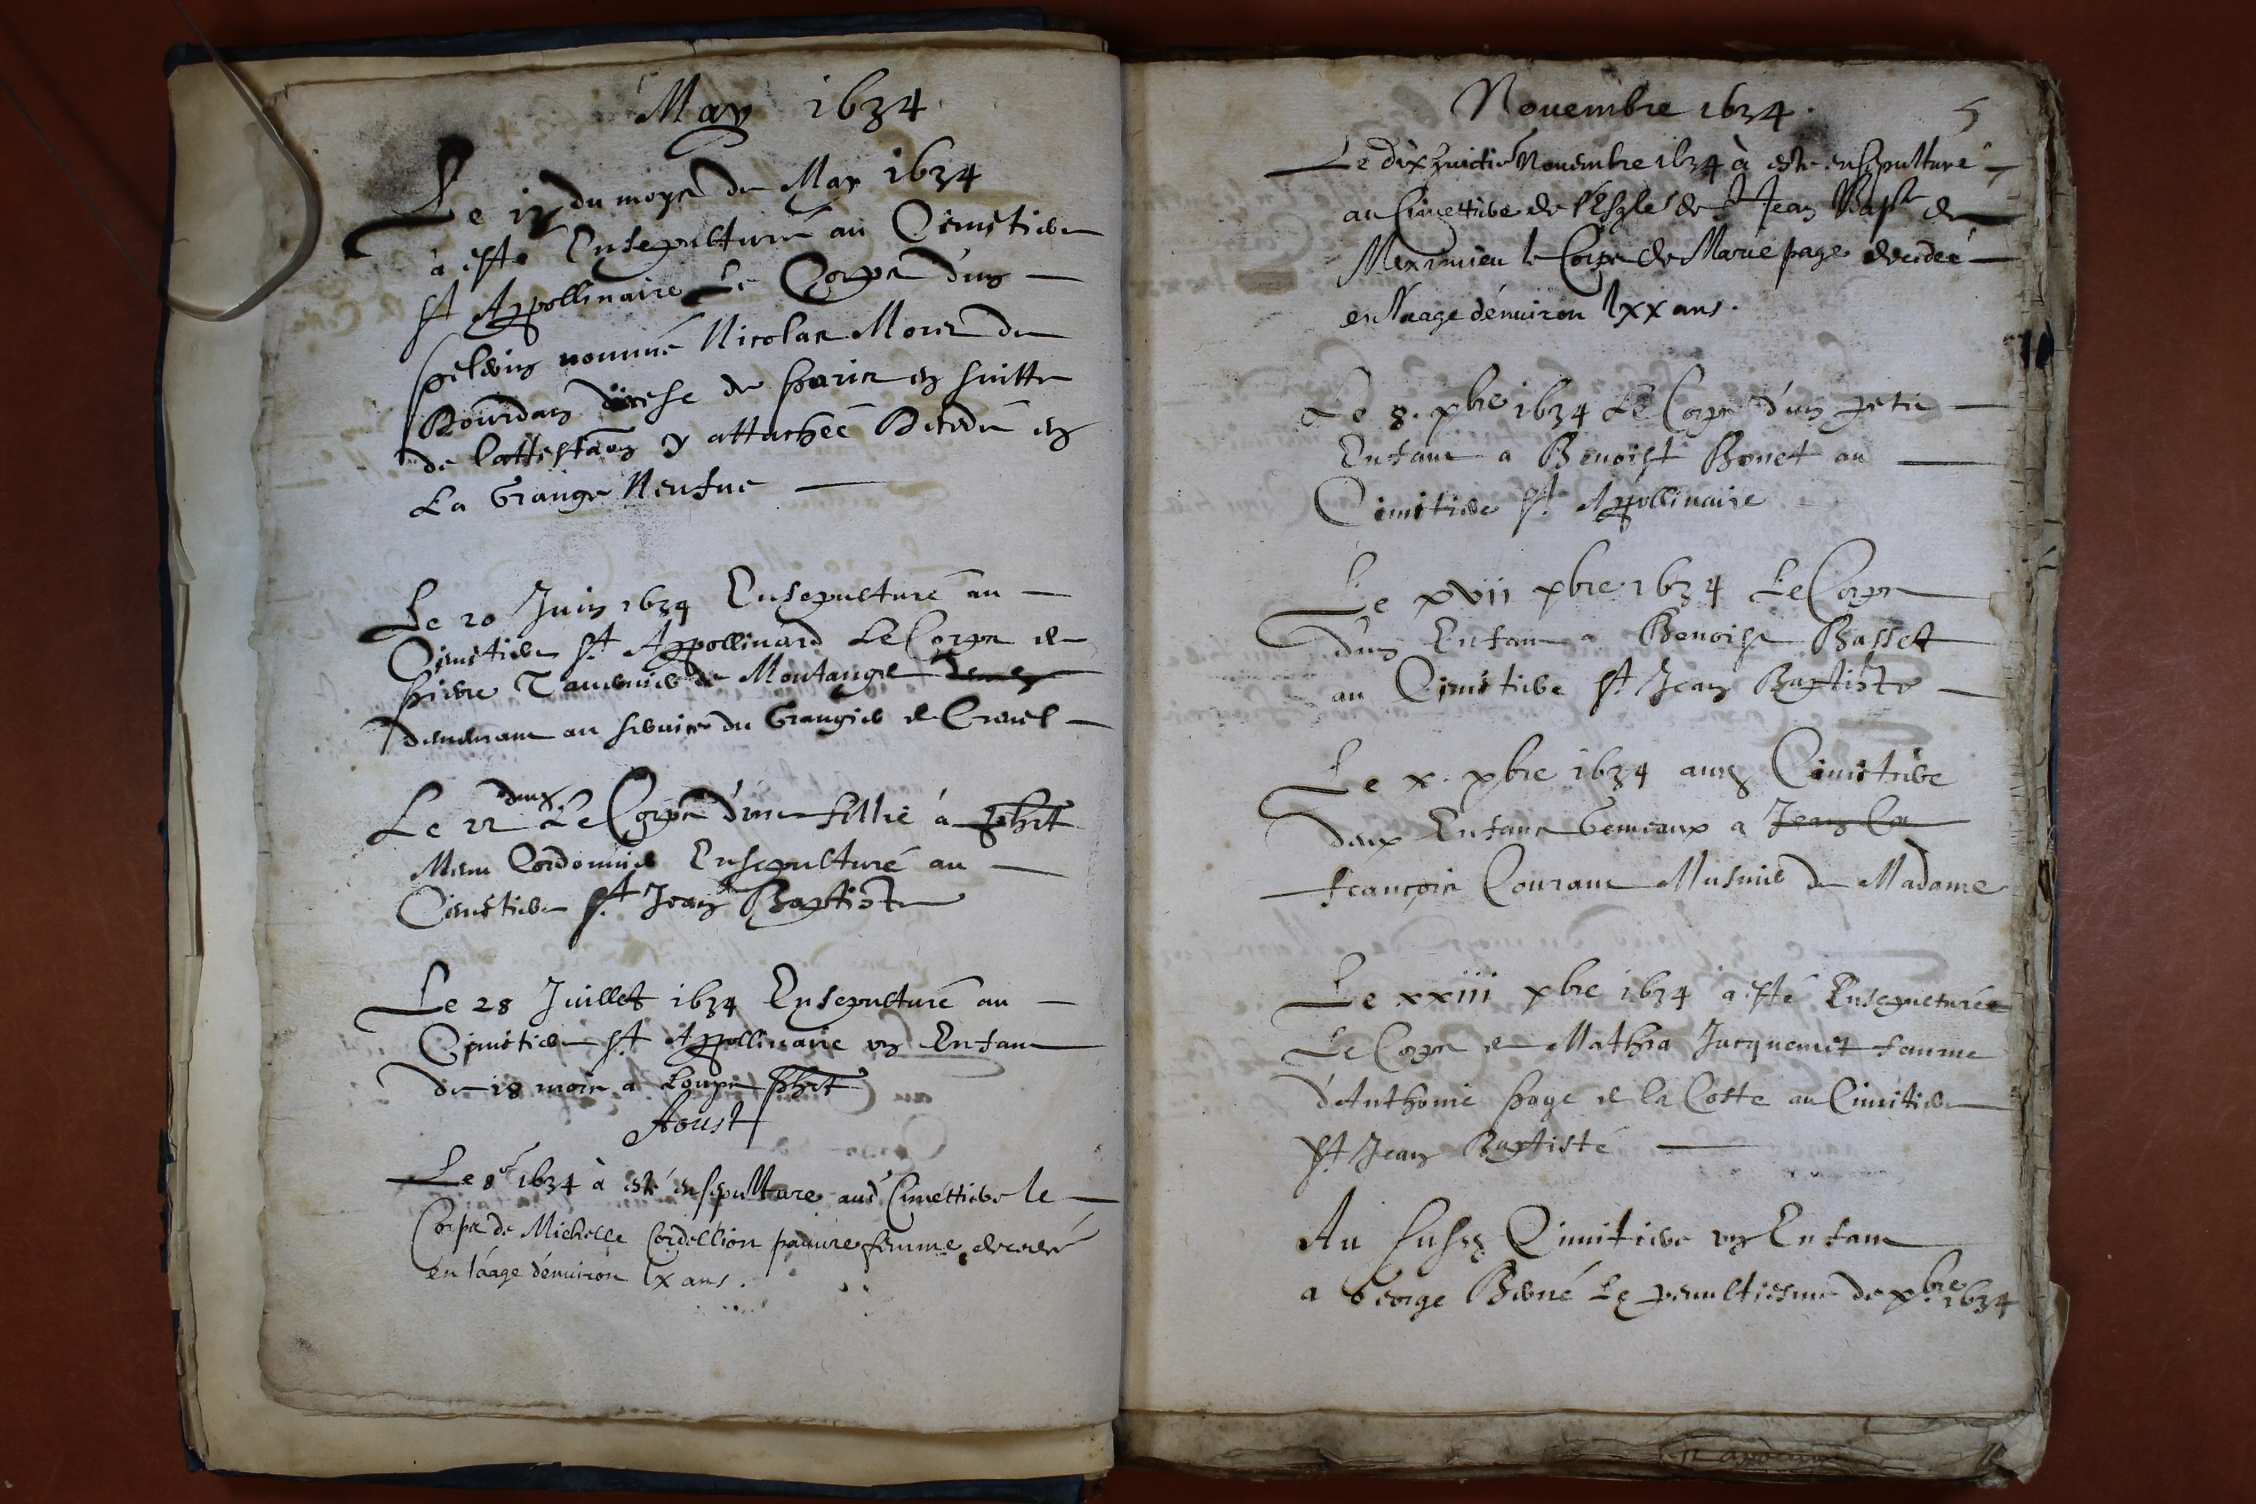 May 1634
Le ix du moys de May 1634
à esté Ensepulturé au Cimetiere
St Appollinaire Le Corps d'un
pelerin nommé Nicolas Morez de
Bourdan diocese de Paris en suitte
de l'attestaon y attachée Decedé en
La Grange Neufve
Le 20 Juin 1634 Ensepulturé au
Cimetiere St Appollinard Le Corps de
Pierre Tavernier de Montange
demeurant au service du Grangier de Cruel
Le 22 dud Le Corps d'une fillie à Phit
Cordonnier Ensepulturé au
Cimetiere St Jean Baptiste
Le 28 Juillet 1634 Ensepulturé au
Cimetiere St Appollinaire un Enfant
de 18 mois a Loups Phit
Aoust
Le 8e 1634 à esté ensepulture aud Cimettiere le
Corps de Michelle Cordellion pauvre femme decedée
en l'aage d'environ lx ans.
Novembre 1634.
5
Le dixhuictie Novembre 1634 à esté ensepulturé
au Cimettiere de l'Esgle de St Jean Bapte de
Meximieu le Corps de Marie page decedeé
en l'aage d'environ lxx ans.
Le 8. xbre 1634 Le Corps d'un petit
Enfant a Benoist Bonet au
Cimetiere St Appollinaire
Le xvii xbre 1634 Le Corps
d'un Enfant a Benoist Basset
au Cimetiere St Jean Baptiste
Le x. xbre 1634 aud Cimetiere
deux Enfans Gemeaux a Jean Co
francois Courant Musnier de Madame
Le xxiii xbre 1634 a esté Ensepulturée
Le Corps de Mathia Jacquemet femme
d'Anthoine Page de la Coste au Cimetiere
St Jean Baptiste
Au susd Cimitiere un Enfant
a George Berné Le penultiesme de xbre 1634